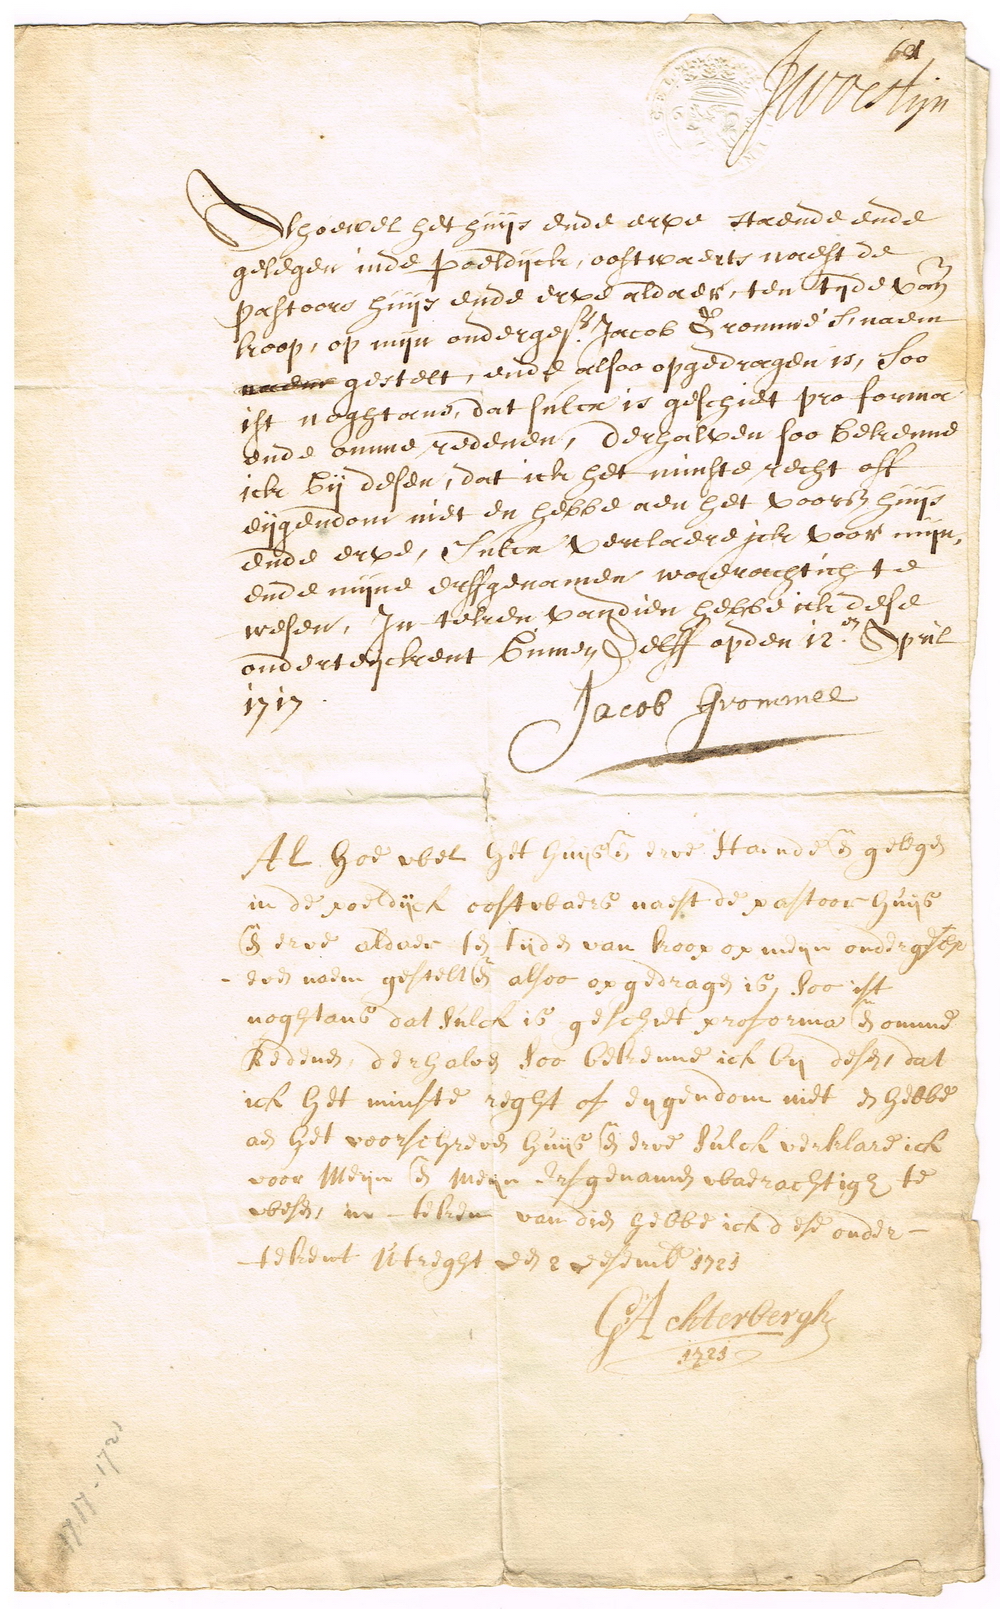 JWoestijn
Alhoewel het huijs ende erve staende ende
gelegen inde Poeldijck, oostwaerts naest de
pastoors huijs ende erve aldaer, ten tijde van
koop, op mijn onderges: Jacob Grommeé S, naem
naem gestelt, ende alsoo opgedragen is, Soo
ist noghtans, dat sulcx is geschiet pro forma
ende omme redenen, derhalven soo bekenne
ick bij desen, dat ick het minste recht off
eijgendom niet en hebbe aen het voorsz huijs
ende erve, Sulcx verclaere ick voor mijn,
ende mijne erffgenamen waerachtich te
wesen, In teken vandien hebbe ick dese
onderteyckent binnen Delff opden 12en April
1717
Jacob Grommee
Al hoe wel het huijs en erve staende en gelegen
in de poeldijck oostwaers naest de pastoor huijs
en erve aldaer ten tijden van koop op meyn ondergeschre
-ven naem gestelt en alsoo op gedragen is, soo ist
noghtans dat sulck is geschiet proforma en omme
Redenen, derhalven soo bekenne ick by desen, dat
ick het minste reght of eygendom niet en hebbe
aen het voorschreven huijs en erve sulck verklare ick
voor meyn en meyn erfgenamen waerachtigh te
wesen, in teken van dien hebbe ick dese onder-
-tekent Utreght den 2 desemb 1721
G Achterbergh
1721
1717-1721